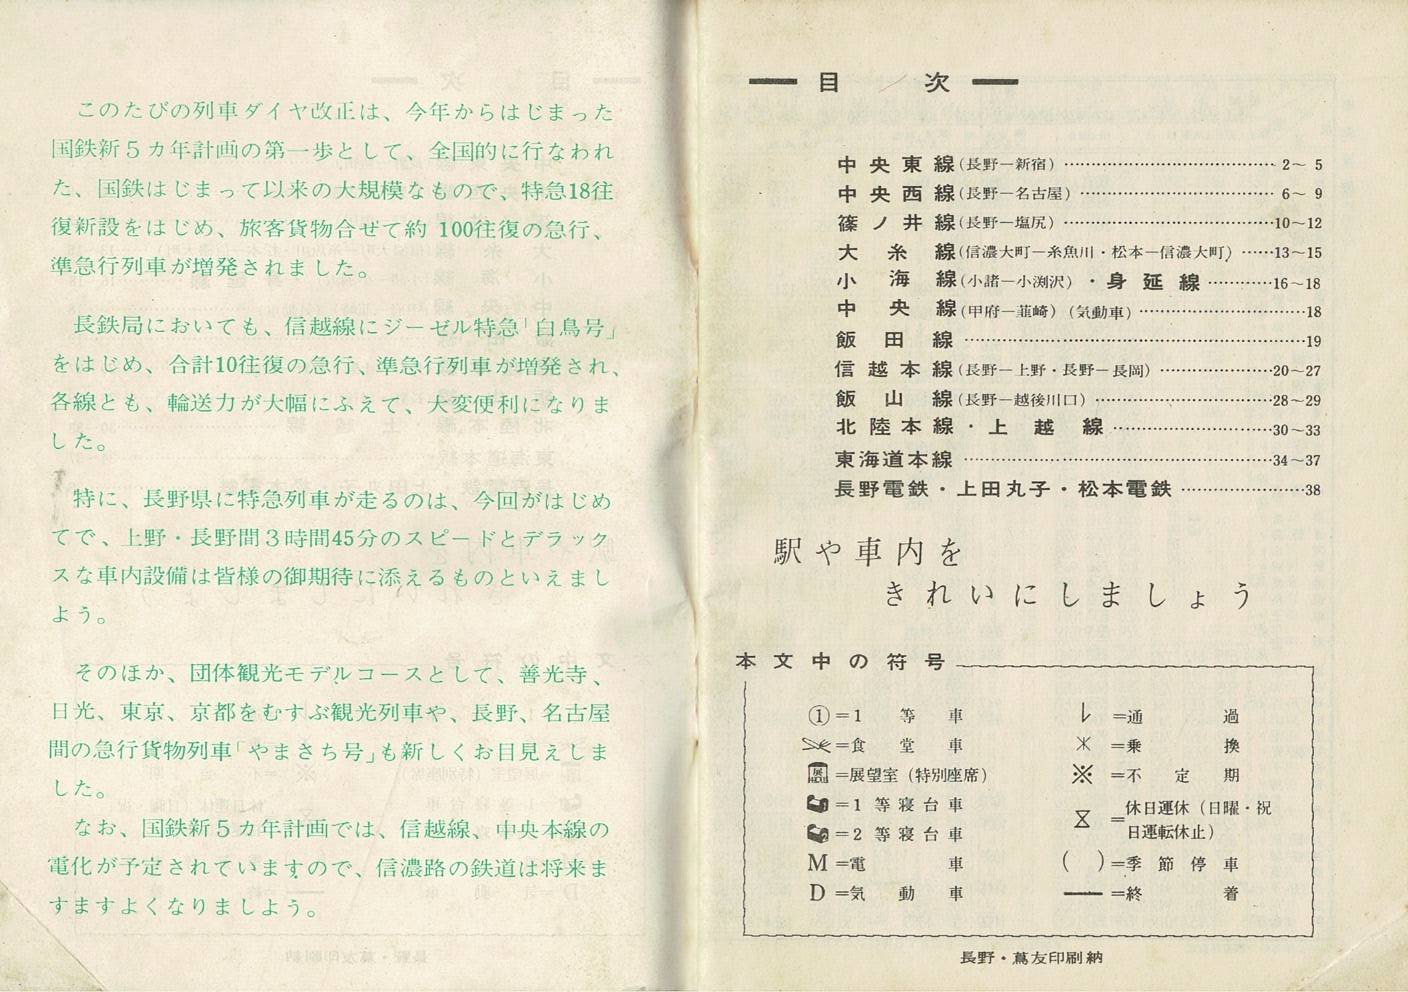 このたびの列車ダイヤ改正は、今年からはじまった
国鉄新5カ年計画の第一歩として、全国的に行なわれ
た、国鉄はじまって以来の大規模なもので、特急18往
復新設をはじめ、旅客貨物合せて約100往復の急行、
準急行列車が増発されました。
長鉄局においても、信越線にジーゼル特急「白鳥号」
をはじめ、合計10往復の急行、準急行列車が増発され、
各線とも、輸送力が大幅にふえて、大変便利になりま
した。
特に、長野県に特急列車が走るのは、今回がはじめ
てで、上野・長野間3時間45分のスピードとデラック
スな車内設備は皆様の御期待に添えるものといえまし
よう。
そのほか、団体観光モデルコースとして、善光寺、
日光、東京、京都をむすぶ観光列車や、長野、名古屋
間の急行貨物列車「やまさち号」も新しくお目見えしま
した。
なお、国鉄新5カ年計画では、信越線、中央本線の
電化が予定されていますので、信濃路の鉄道は将来ま
すますよくなりましよう。
目次
中央東線(長野―新宿)……2～5
中央西線(長野―名古屋)……6～9
篠ノ井線(長野―塩尻)……10～12
大糸線(信濃大町―糸魚川・松本―信濃大町)……13～15
小海線(小諸―小渕沢)・身延線……16～18
中央線(甲府―韮崎)(気動車)……18
飯田線……19
信越本線(長野―上野・長野―長岡)……20～27
飯山線(長野―越後川口)……28～29
北陸本線・上越線……30～33
東海道本線……34～37
長野電鉄・上田丸子・松本電鉄……38
駅や車内を
きれいにしましょう
本文中の符号
①=1等車
=食堂車
=展望室(特別座席)
=1等寝台車
=2等寝台車
M=電車
D=気動車
=通過
=乗換
※=不定期
=休日運休(日曜・祝
日運転休止)
( )=季節停車
―=終着
長野・蔦友印刷納